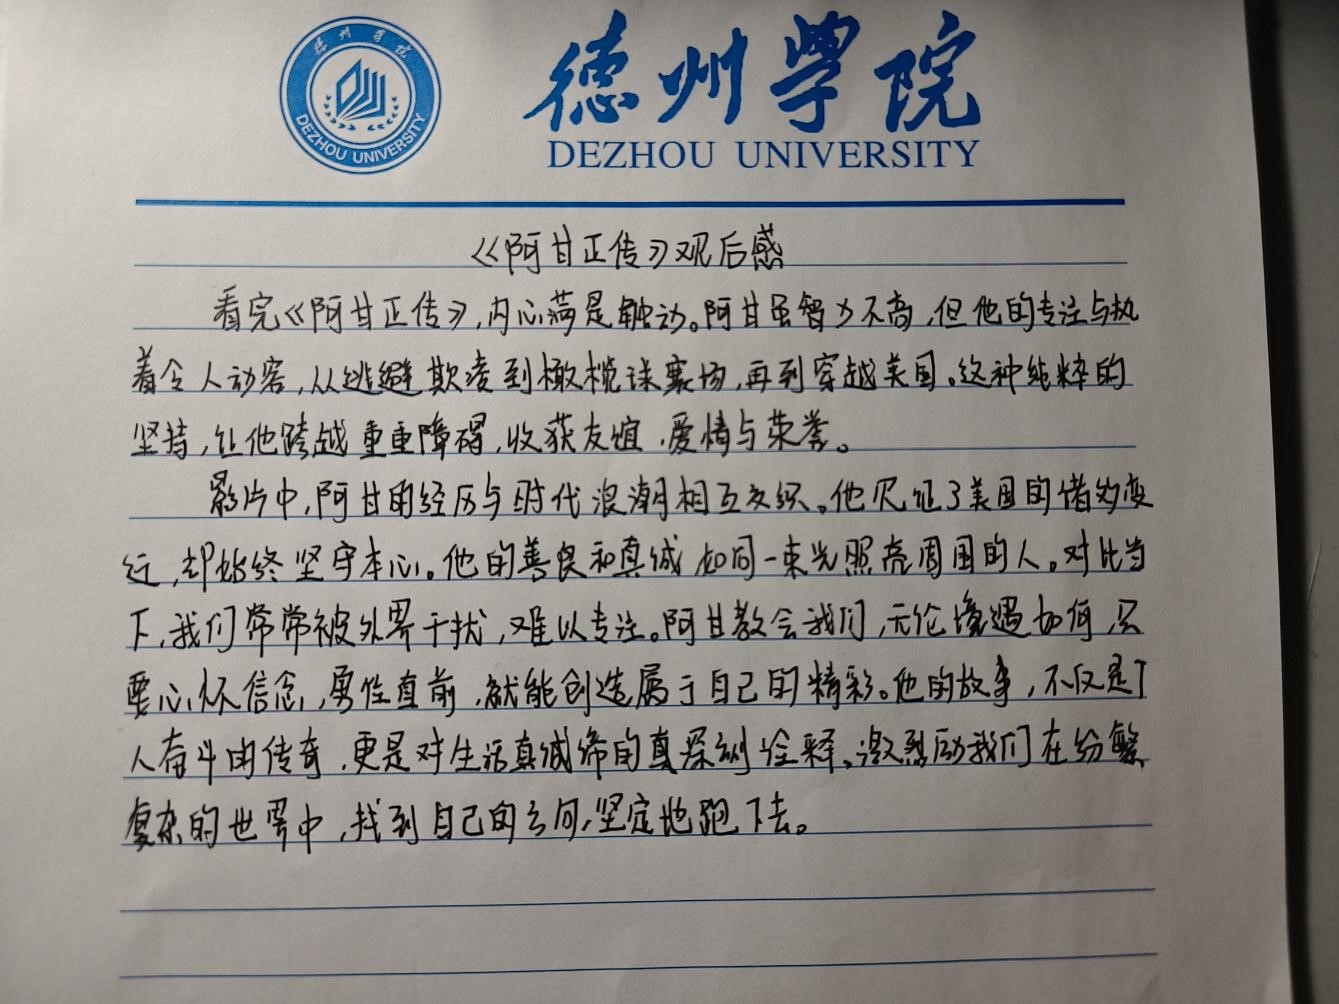 德州学院
DEZHOU UNIVERSITY
德州学院
DEZHOU UNIVERSITY
《阿甘正传》观后感
看完《阿甘正传》,内心满是触动。阿甘虽智力不高,但他的专注与执
着令人动容,从逃避欺凌到橄榄球赛场,再到穿越美国。这种纯粹的
坚持,让他跨越重重障碍,收获友谊、爱情与荣誉。
影片中,阿甘的经历与时代浪潮相互交织。他见证了美国的诸多变
迁,却始终坚守本心。他的善良和真诚如同一束光照亮周围的人。对比当
下,我们常常被外界干扰,难以专注。阿甘教会我们,无论境遇如何,只
要心怀信念,勇往直前,就能创造属于自己的精彩。他的故事,不仅是
人奋斗的传奇,更是对生活真诚的深刻诠释。激励我们在纷繁
复杂的世界中,找到自己的方向,坚定地跑下去。